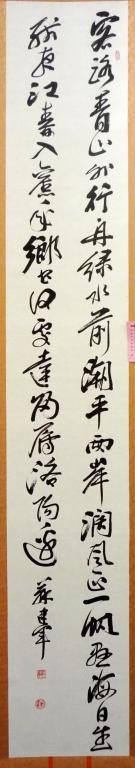 客路青山外行舟緑水前潮平兩岸闊風正一帆懸海日生
殘夜江春入舊年鄉書何處達歸雁洛陽邊